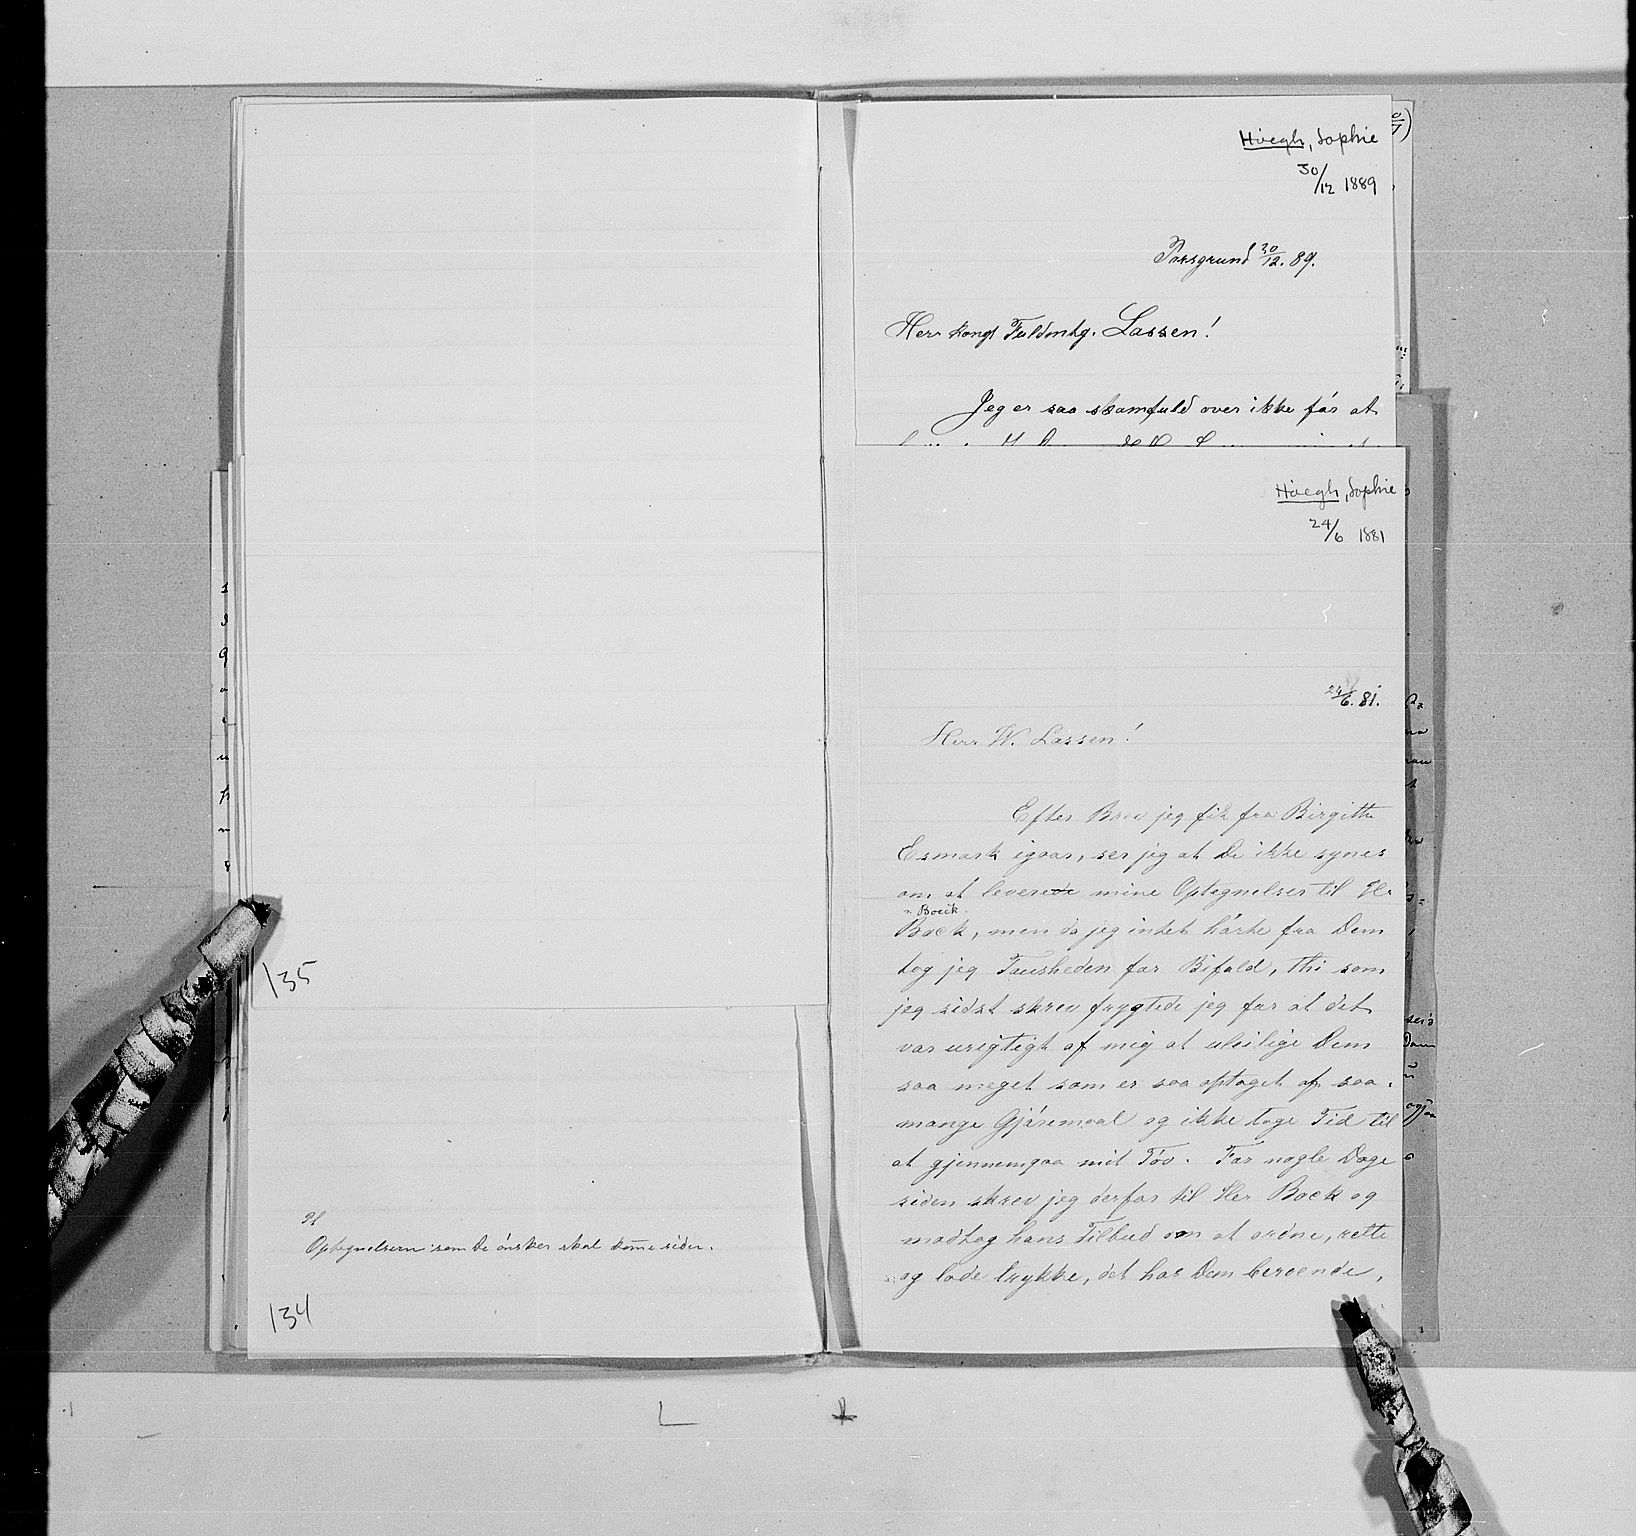 135
H
Optegnelserne som De ønsker skal kome siden.
134
Höegh, Sophie
30/12 1889
Porsgrund 30/12. 89.
Herr kongl Fuldmtg. Lassen!
Jeg er saa skamfuld over ikke før at
Höegh, Sophie
24/6 1881
24/6. 81.
Herr W. Lassen!
Efter Brev jeg fik fra Birgitte
Esmark igaar, ser jeg at De ikke synes
om at leverede mine Optegnelser til Hr
Boeck
Bock, men da jeg intet hørte fra Dem
tog jeg Tausheden for Bifald, thi som
jeg sidst skrev frygtede jeg for at det
var urigtigt af mig at uleilige Dem
saa meget som er saa optaget af saa
mange Gjøremaal og ikke toge Tid til
at gjennemgaa mit Tøv. For nogle Dage
siden skrev jeg derfor til Her Bock og
modtog hans Tilbud om at ordne, rette
og lade trykke, det hos Dem beroende,